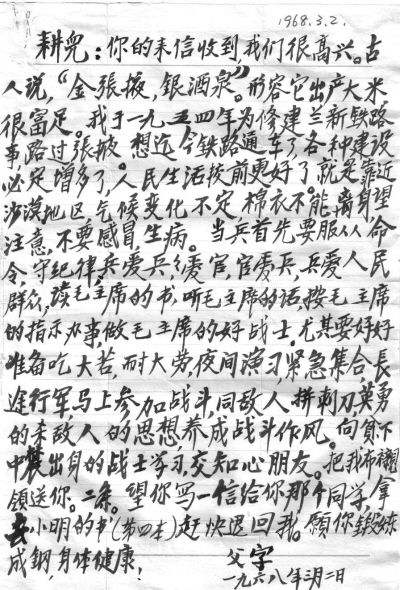 1968.3.2.
耕兒:你的来信收到,我们很高兴。古
人说,“金張掖,銀酒泉”。形容它出产大米
很富足。我于一九五四年为修建兰新铁路
事路过張掖 想迄今铁路通车了各种建设
必定增多了,人民生活按前更好了 就是靠近
沙漠地区气候变化不定,棉衣不能離身望
注意,不要感冒,生病。当兵首先要服从命
令,守纪律,兵爱兵,兵爱官,官爱兵,兵爱人民
群众,读毛主席的书,听毛主席的话,按毛主席
的指示办事,做毛主席的好战士。尤其要好好
准备吃大苦,耐大劳,夜间演习,紧急集合,長
途行軍马上参加战斗,同敌人拼刺刀,英勇
的杀敌人的思想养成战斗作风。向貧下
中農出身的战士学习,交知心朋友。把我布襯
領送你。二条。望你写一信给你那个同学拿
去小明的书(第四本)赶快退回我。願你鍛练
成钢,身体健康!
父字
一九六八年三月二日